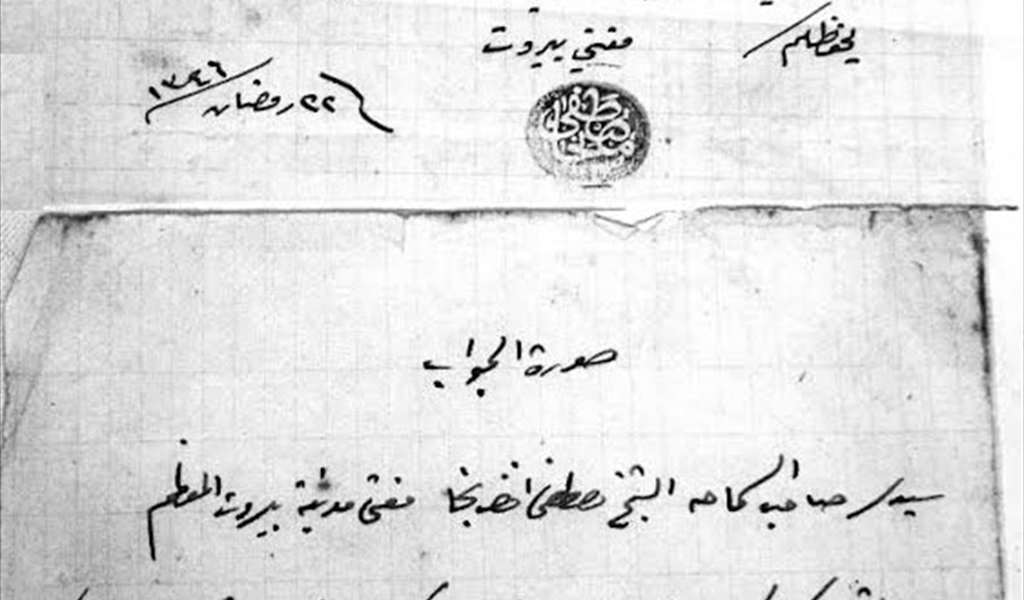 يحفظكم
مفتي بيروت
٢٢ رمضان ١٣٤٦
مصطفى نجا
صورة الجواب
سيدي صاحب السماحه الشيخ مصطفى افندي نجا مفتي مدينة بيروت المعظم